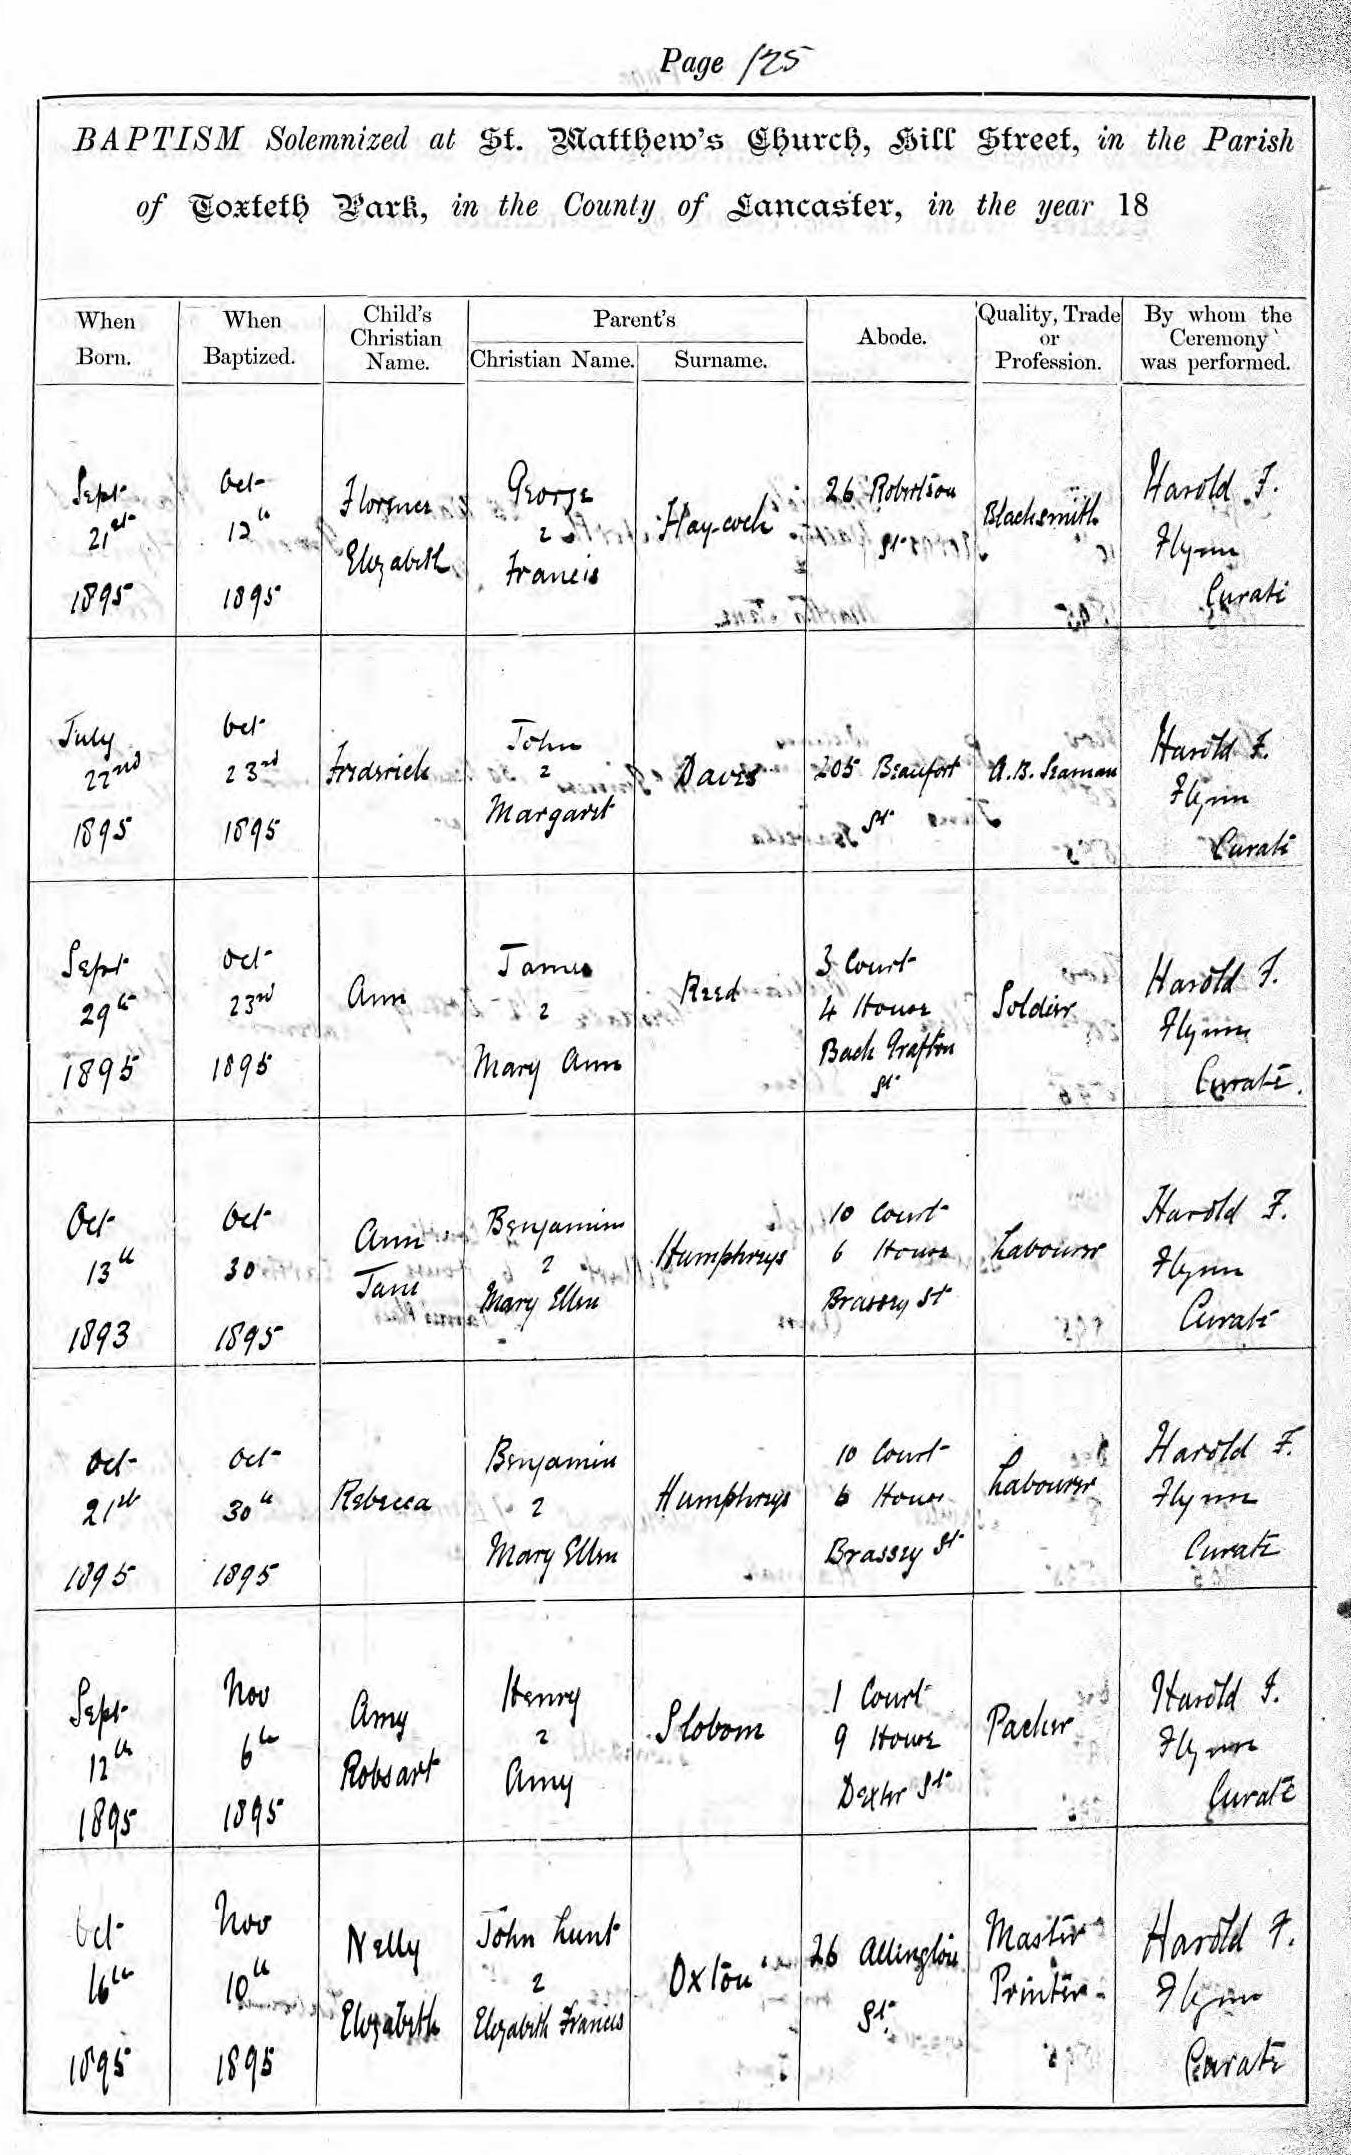 Page 125
BAPTISM Solemnized at St. Matthew's Church, Hill Street, in the Parish
of Toxteth Park, in the County of Lancaster, in the year 18
When Born.
When Baptized.
Child's Christian Name.
Parent's
Christian Name.
Surname.
Abode.
Quality, Trade or Profession.
By whom the Ceremony was performed.
Sept 21st 1895
Oct 12th 1895
Florence Elizabeth
George & Francis
Haycock
26 Robertson St
Blacksmith
Harold F. Flynn Curate
July 22nd 1895
Oct 23rd 1895
Frederick
John & Margaret
Daves
205 Beaufort St
A.B. Seaman
Harold F. Flynn Curate
Sept 29th 1895
Oct 23rd 1895
Ann
James & Mary Ann
Reed
3 Court 4 House Back Grafton St
Soldier
Harold F. Flynn Curate.
Oct 13th 1893
Oct 30 1895
Ann Jane
Benjamin & Mary Ellen
Humphreys
10 Court 6 House Brassey St
Labourer
Harold F. Flynn Curate
Oct 21st 1895
Oct 30th 1895
Rebecca
Benjamin & Mary Ellen
Humphreys
10 Court 6 House Brassey St
Labourer
Harold F. Flynn Curate
Sept 12th 1895
Nov 6th 1895
Amy Robsart
Henry & Amy
Slobom
1 Court 9 House Dexter St
Packer
Harold F. Flynn Curate
Oct 16th 1895
Nov 10th 1895
Nelly Elizabeth
John Lunt & Elizabeth Francis
Oxton
26 Allington St.
Master Printer
Harold F. Flynn Curate